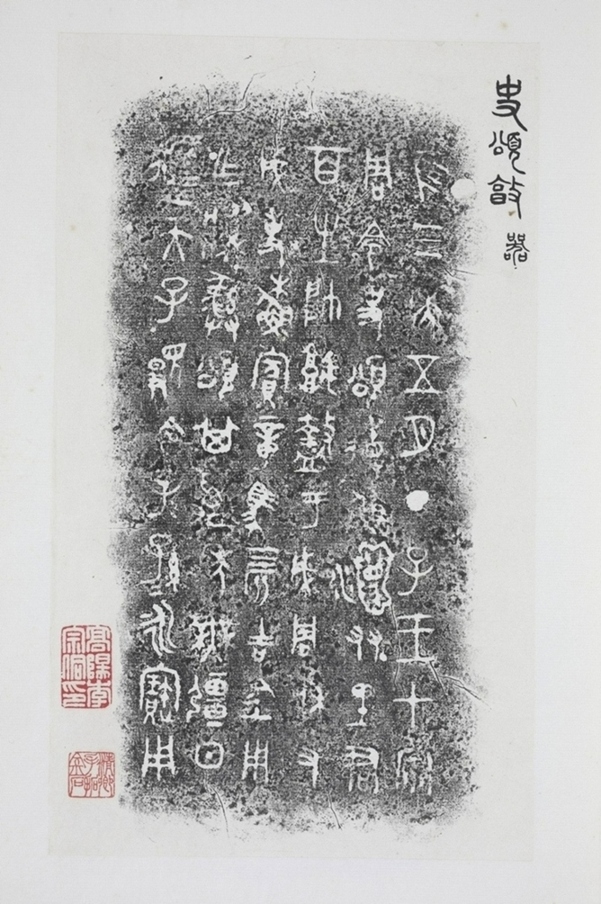 史頌敦 器
隹三年五月丁子王才宗
周令史頌省穌友里君
百生帥盩于成周休又
成事穌賓章馬四匹吉金用
乍彝頌其萬年無疆日
天子顯令子孫永寶用
高陽李宗侗印